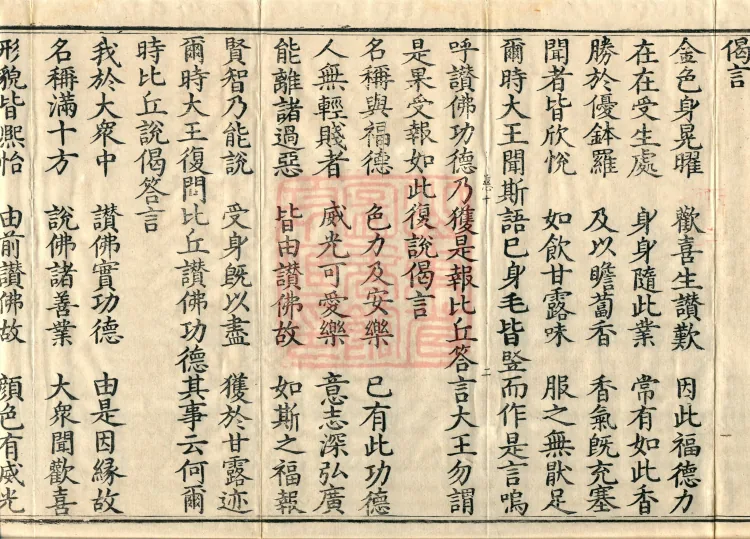 偈言
金色身晃曜 歡喜生讃歎 因此福德力
在在受生處 身身隨此業 常有如此香
勝於優鉢羅 及以瞻蔔香 香氣旣充塞
聞者皆欣悅 如飲甘露味 服之無猒足
爾時大王聞斯語已身毛皆竪而作是言嗚
呼讃佛功德乃獲是報比丘答言大王勿謂
是果受報如此復說偈言
名稱與福德 色力及安樂 已有此功德
人無輕賤者 威光可愛樂 意志深弘廣
能離諸過惡 皆由讃佛故 如斯之福報
賢智乃能說 受身旣以盡 獲於甘露迹
爾時大王復問比丘讃佛功德其事云何爾
時比丘說偈答言
我於大衆中 讃佛實功德 由是因緣故
名稱滿十方 說佛諸善業 大衆聞歡喜
形貌皆熈怡 由前讃佛故 顔色有威光